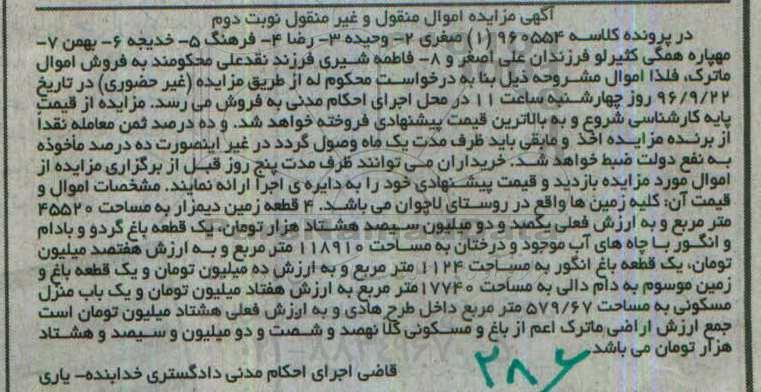 آگهی مزایده اموال منقول و غیر منقول نوبت دوم
در پرونده کلاسه ۹۶۰۵۵۴ (۱) صغری ۲- وحیده ۳- رضا ۴- فرهنگ ۵- خدیجه ۶- بهمن ۷-
مهپاره همگی کثیرلو فرزندان علی اصغر و ۸- فاطمه شیری فرزند نقدعلی محکومند به فروش اموال
ماترک، فلذا اموال مشروحه ذیل بنا به درخواست محکوم له از طریق مزایده (غیر حضوری) در تاریخ
۹۶/۹/۲۲ روز چهارشنبه ساعت ۱۱ در محل اجرای احکام مدنی به فروش می رسد. مزایده از قیمت
پایه کارشناسی شروع و به بالاترین قیمت پیشنهادی فروخته خواهد شد. و ده درصد ثمن معامله نقداً
از برنده مزایده اخذ و مابقی باید ظرف مدت یک ماه وصول گردد در غیر اینصورت ده درصد ماخوذه
به نفع دولت ضبط خواهد شد. خریداران می توانند ظرف مدت پنج روز قبل از برگزاری مزایده از
اموال مورد مزایده بازدید و قیمت پیشنهادی خود را به دایره ی اجرا ارائه نمایند. مشخصات اموال و
قیمت آن: کلیه زمین ها واقع در روستای لاچوان می باشد. ۴ قطعه زمین دیمزار به مساحت ۴۵۵۲۰
متر مربع و به ارزش فعلی یکصد و دو میلیون سیصد هشتاد هزار تومان، یک قطعه باغ گردو و بادام
و انگور با چاه های آب موجود و درختان به مساحت ۱۱۸۹۱۰ متر مربع و به ارزش هفتصد میلیون
تومان، یک قطعه باغ انگور به مساحت ۱۱۲۴ متر مربع و به ارزش ده میلیون تومان و یک قطعه باغ و
زمین موسوم به دام دالی به مساحت ۱۷۷۴۰ متر مربع به ارزش هفتاد میلیون تومان و یک باب منزل
مسکونی به مساحت ۵۷۹/۶۷ متر مربع داخل طرح هادی و به ارزش فعلی هشتاد میلیون تومان است
جمع ارزش اراضی ماترک اعم از باغ و مسکونی کلا نهصد و شصت و دو میلیون و سیصد و هشتاد
هزار تومان می باشد
۲۸۶
قاضی اجرای احکام مدنی دادگستری خدابنده- یاری